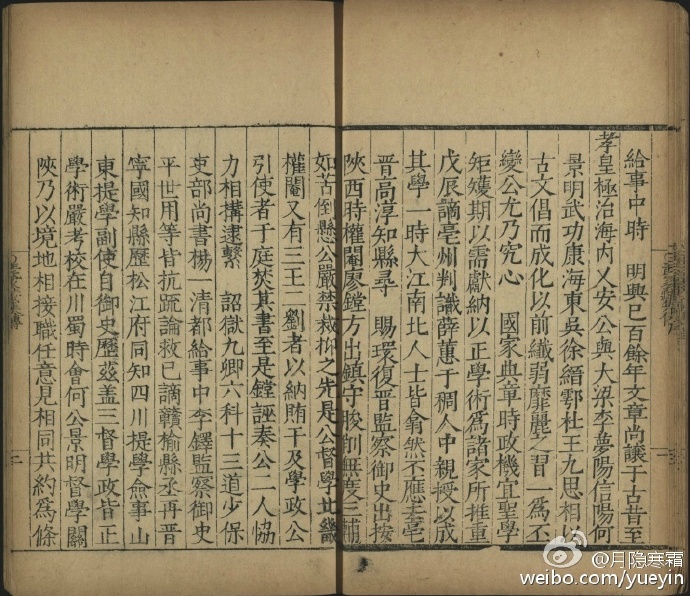 給事中時　明興已百餘年文章尚讓于古昔至
孝皇極治海內乂安公與大梁李夢陽信陽何
景明武功康海東吳徐縉鄠杜王九思相以
古文倡而成化以前纖弱靡麗人習一為丕
變公尤乃究心　國家典章時政機宜聖學
矩矱期以需獻納以正學術為諸家所推重
戊辰謫亳州判識薛蕙于稠人中親授以成
其學一時大江南北人士皆翕然丕應去亳
晉高淳知縣尋　賜環復晉監察御史出按
陝西時權閹廖鏜方出鎮守掊剋無度三輔
如苦倒懸公嚴禁裁抑之先是公督學北畿
權閹又有三王二劉者以納賄干及學政公
引使者于庭焚其書至是鏜誣奏公二人恊
力相搆逮繫　詔獄九卿六科十三道少保
吏部尚書楊一清都給事中李鐸監察御史
平世用等皆抗疏論救已謫贛榆縣丞再晉
寧國知縣歷松江府同知四川提學僉事山
東提學副使自御史歷茲蓋三督學政皆正
學術嚴考校在川蜀時會何公景明督學關
陝乃以境地相接職任意見相同共約為條
@月隐寒霜
weibo.com/yueyin